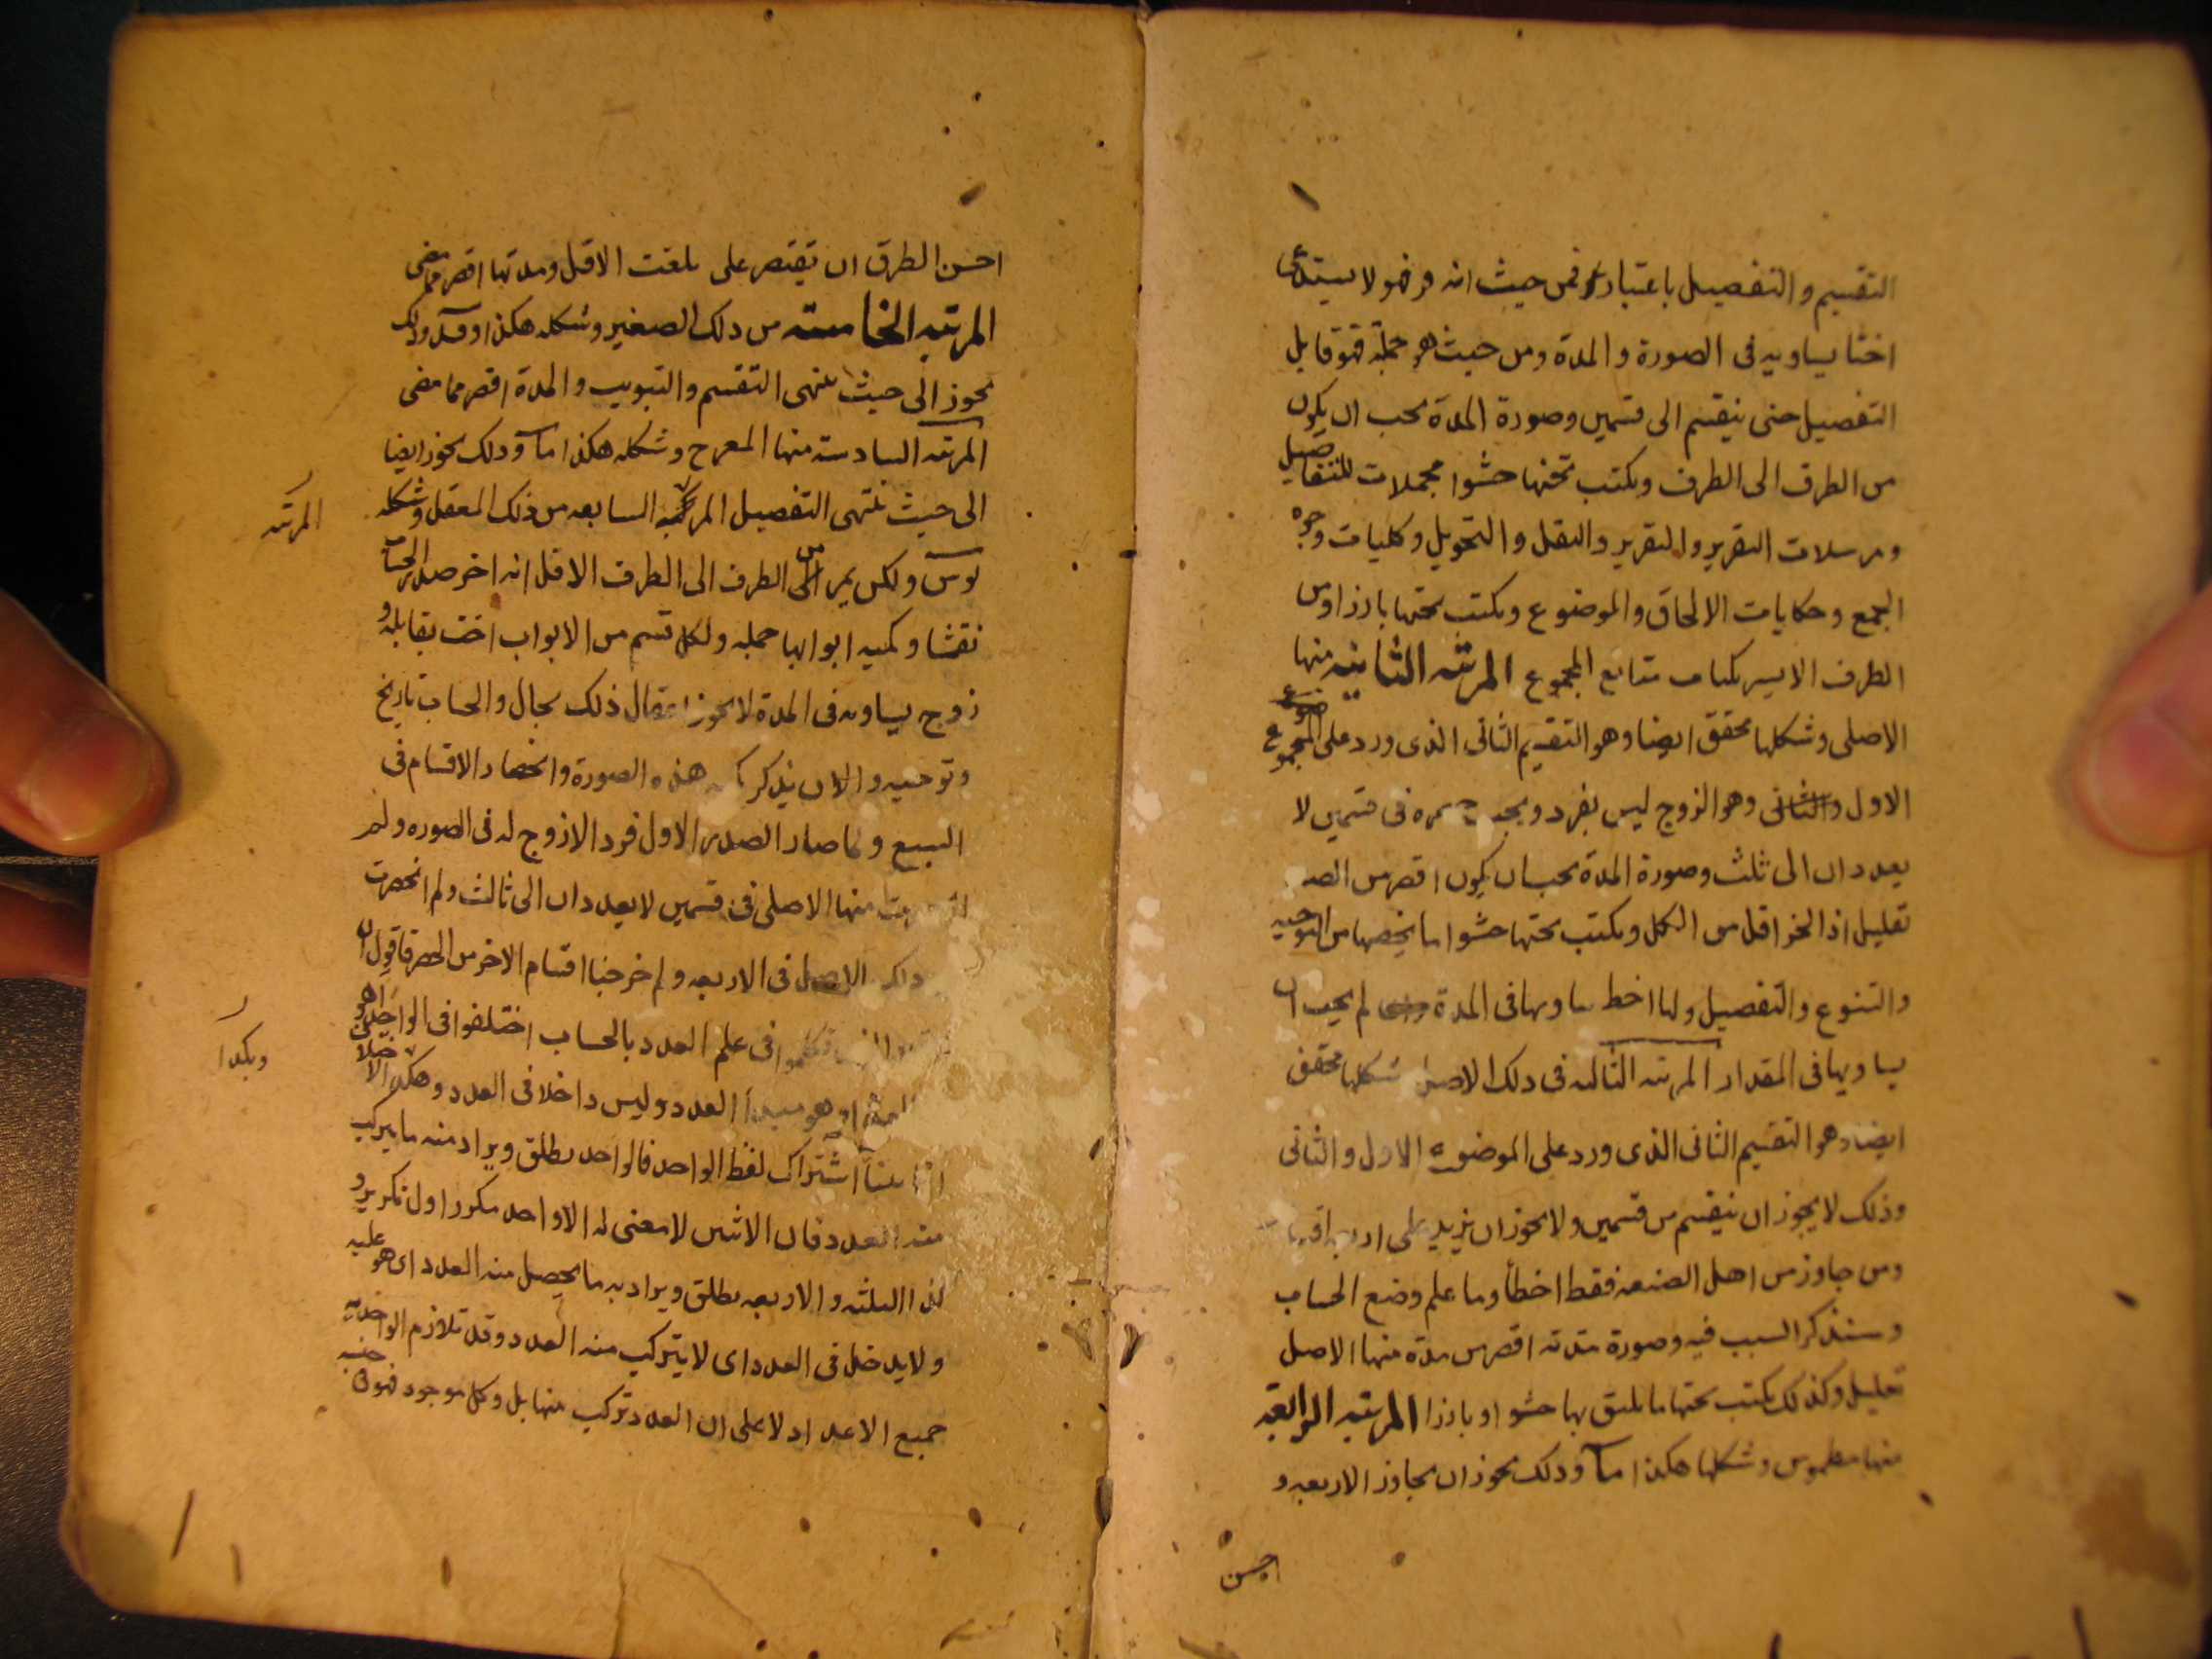 التقسيم والتفصيل باعتبارين فمن حيث انه فرد فهو لا يستدعي
اختا يساويه فى الصورة والمدة ومن حيث هو جملة فهو قابل
التفصيل حتى ينقسم الى قسمين وصورة المدة يجب ان يكون
من الطرف الى الطرف ويكتب تحتها حشوا مجملات التفاصيل
ومرسلات التقدير والتقرير والنقل والتحويل وكليات وجوه
الجمع وحكايات الالحاق والموضوع ويكتب تحتها بارزا ومن
الطرف الايسر كميات متتابع المجموع المرتبه الثانيه منها
الاصلى وشكلها محقق ايضا وهو التقسيم الثانى الذى ورد على المجموع
الاول والثانى وهو الزوج ليس بفرد ويجب فى قسمين لا
يعددان الى ثلث وصورة المدة يجب ان يكون اقصر من
بقليل اذ الجزء اقل من الكل ويكتب تحتها حشوا ما يخصها من التوجيه
والتنوع والتفصيل ولها اخط يساويها فى المدة لم يجب ان
يساويها فى المقدار المرتبه الثالثه فى ذلك الاصل شكلها محقق
ايضا وهو التقسيم الثانى الذى ورد على الموضوع الاول والثانى
وذلك لا يجوز ان ينقسم من قسمين ولا يجوز ان يزيد على اربعه اقسام
ومن جاوز من اهل الصنعه فقط اخطأ وما علم وضع الحساب
وسنذكر السبب فيه وصورة مدته اقصر من مدة منها الاصل
بقليل وكذلك يكتب تحتها ما يليق بها حشوا وبارزا المرتبه الرابعه
منها مطموس وشكلها هكذا وذلك يجوز ان يجاوز الاربعه و
احسن
احسن الطرق ان يقتصر على بلغت الاقل ومدتها اقصر مما مضى
المرتبه الخامسه من ذلك الصغير وشكله هكذا وذلك
يجوز الى حيث ينتهى التقسيم والتبويب والمدة اقصر مما مضى
المرتبه السادسه منها المعرج وشكله هكذا وذلك يجوز ايضا
الى حيث ينتهى التفصيل المرتبه السابعه من ذلك المعقل وشكله
المرتبه
ولكن يمر من الطرف الى الطرف الاقل انه اخر صدر الحساب
نقشا وكميه ابوابها جمله ولكل قسم من الابواب اخت يقابله و
زوج يساويه فى المدة لا يجوز اغفال ذلك بحال والحساب تاريخ
وتوجيه والان يذكر هذه الصورة وانحصار الاقسام فى
السبع ولما صار الصدر الاول فردا لا زوج له فى الصوره ولم
انحصرت منها الاصلى فى قسمين لا يعددان الى ثالث ولم انحصرت
ذلك الاصل فى الاربعه ولم خرجنا اقسام الاخر من الحصر فاقول ان
تكلموا فى علم العدد بالحساب اختلفوا فى الواحد اهو
وبكدا
او هو مبدأ العدد وليس داخلا فى العدد وهكذا الاختلاف
اشتراك لفظ الواحد فالواحد يطلق ويراد منه ما يتركب
منه العدد فان الاثنين لا معنى له الا واحد مكرر اول تكرير و
كذا الثلثه والاربعه يطلق ويراد به ما يحصل منه العدد اى هو عليه
ولا يدخل فى العدد اى لا يتركب منه العدد وقد تلازم الواحديه
جميع الاعداد لا على ان العدد تركب منها بل وكل موجود فهو فى جنسه